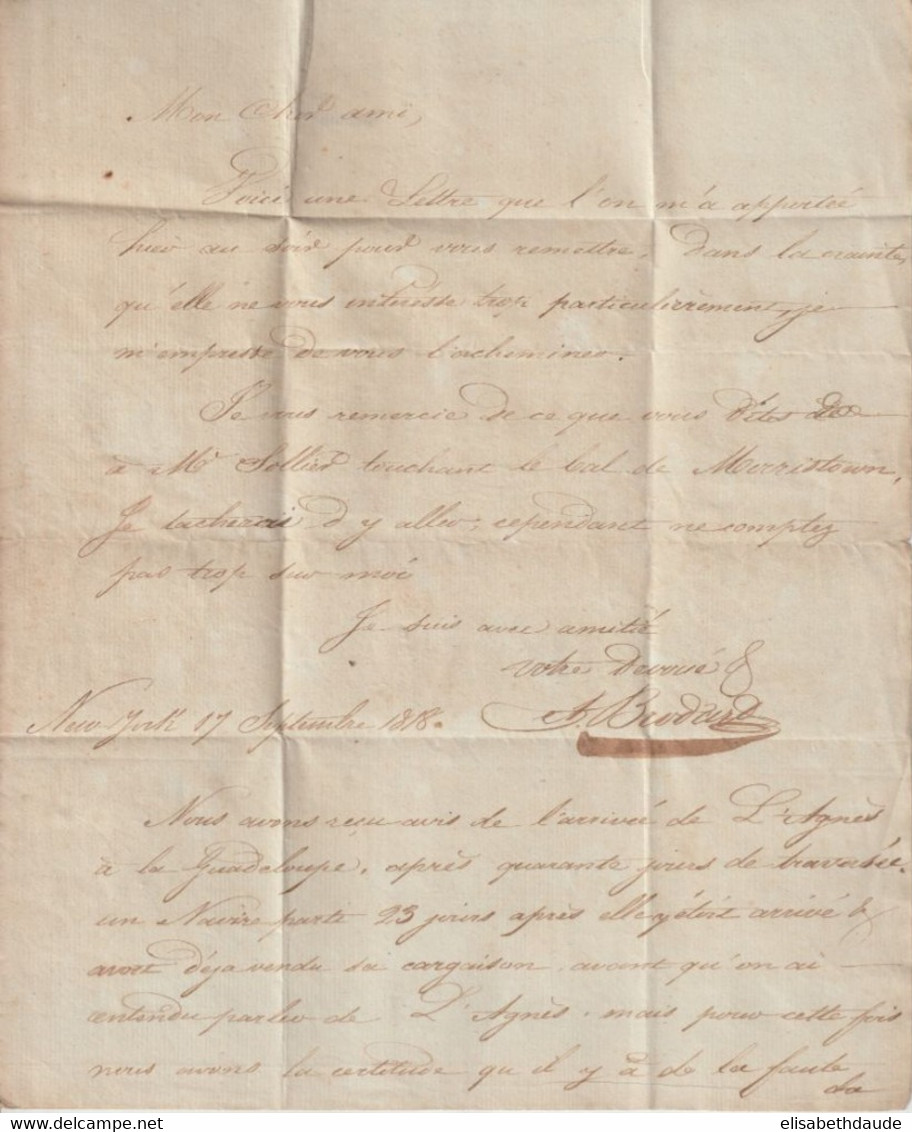 Mon Cher ami,
Voici une Lettre que l'on m'a apportée
hier au soir pour vous remettre. Dans la crainte,
qu'elle ne vous intéresse trop particulièrement, je
m'empresse de vous l'acheminer.
Je vous remercie de ce que vous dites de
à Mr Sollier touchant le bal de Morristown,
Je tacherais d'y aller, cependant ne comptez
pas trop sur moi
Je suis avec amitié
votre Devoué &
New York 17 Septembre 1818. A. Brodard
Nous avons reçu avis de l'arrivée de L'Agnès
à la Guadeloupe, après quarante jours de traversée.
un Navire parti 23 jours après elle y étoit arrivé &
avoit déja vendu sa cargaison avant qu'on ai
entendu parler de L'Agnès. mais pour cette fois
nous avons la certitude qu'il y à de la faute
du
delcampe.net
elisabethdaude